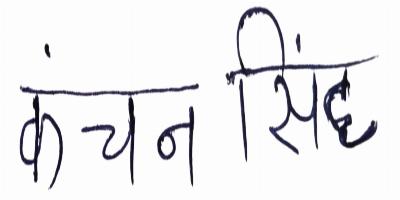 कंचन सिंह